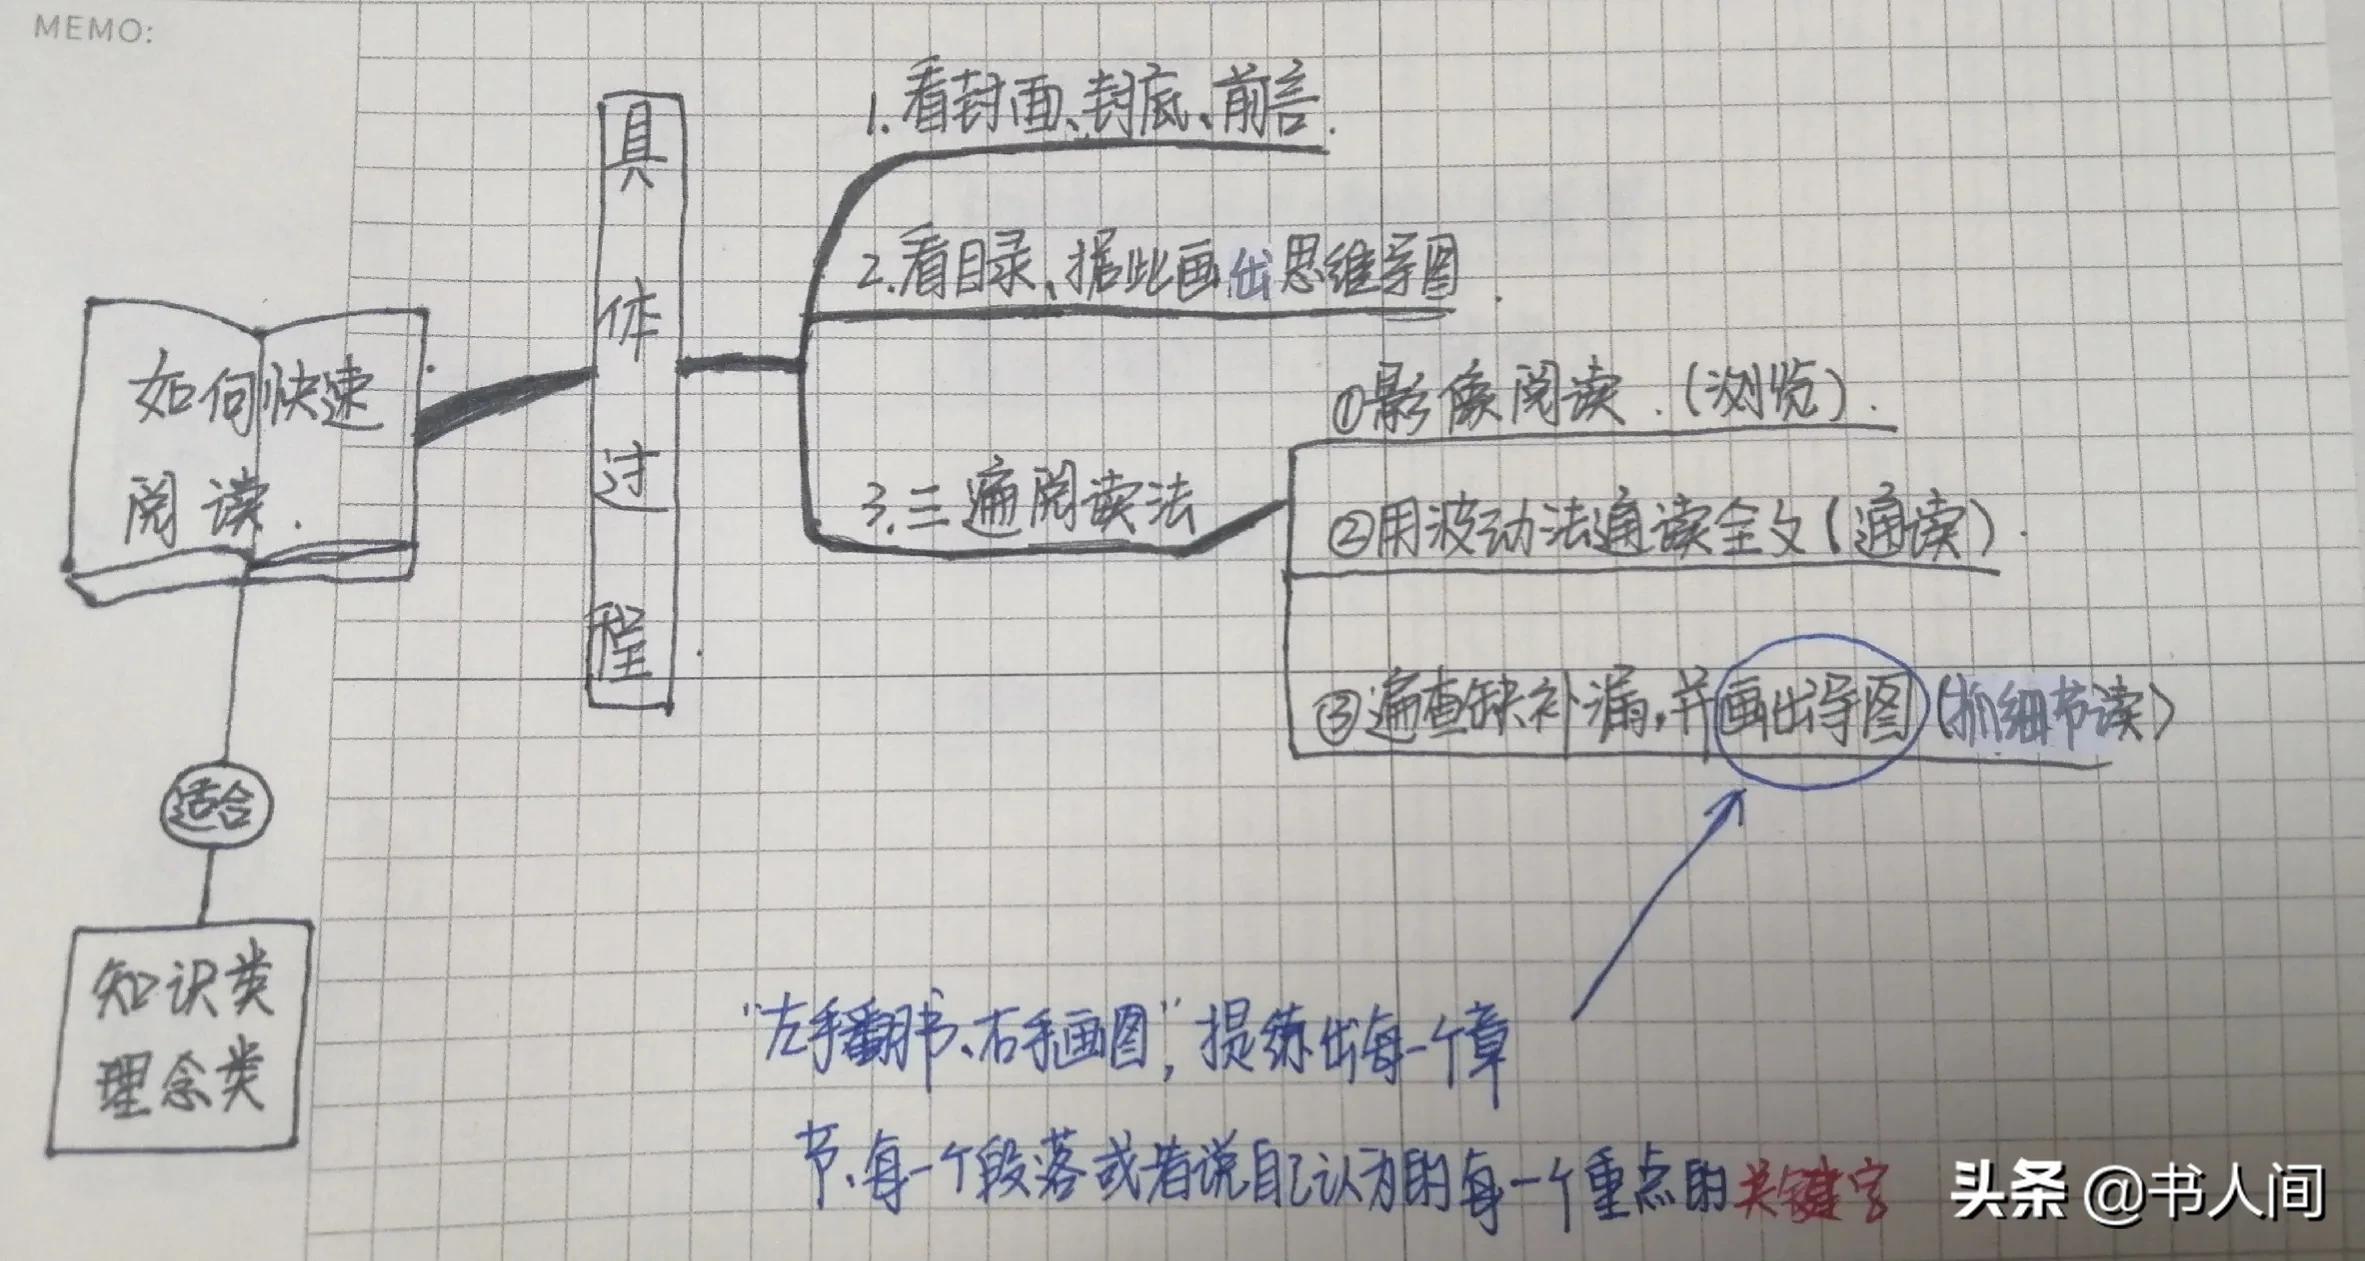 MEMO:
如何快速
阅读.
适合
知识类
理念类
具体过程
1.看封面、封底、前言.
2.看目录、据此画出思维导图.
3.三遍阅读法
①影像阅读.(浏览).
②用波动法通读全文(通读).
③遍查缺补漏,并画出导图(抓细节读)
"左手翻书、右手画图",提练出每一个章
节、每一个段落或者说自己认为的每一个重点的关键字
头条@书人间